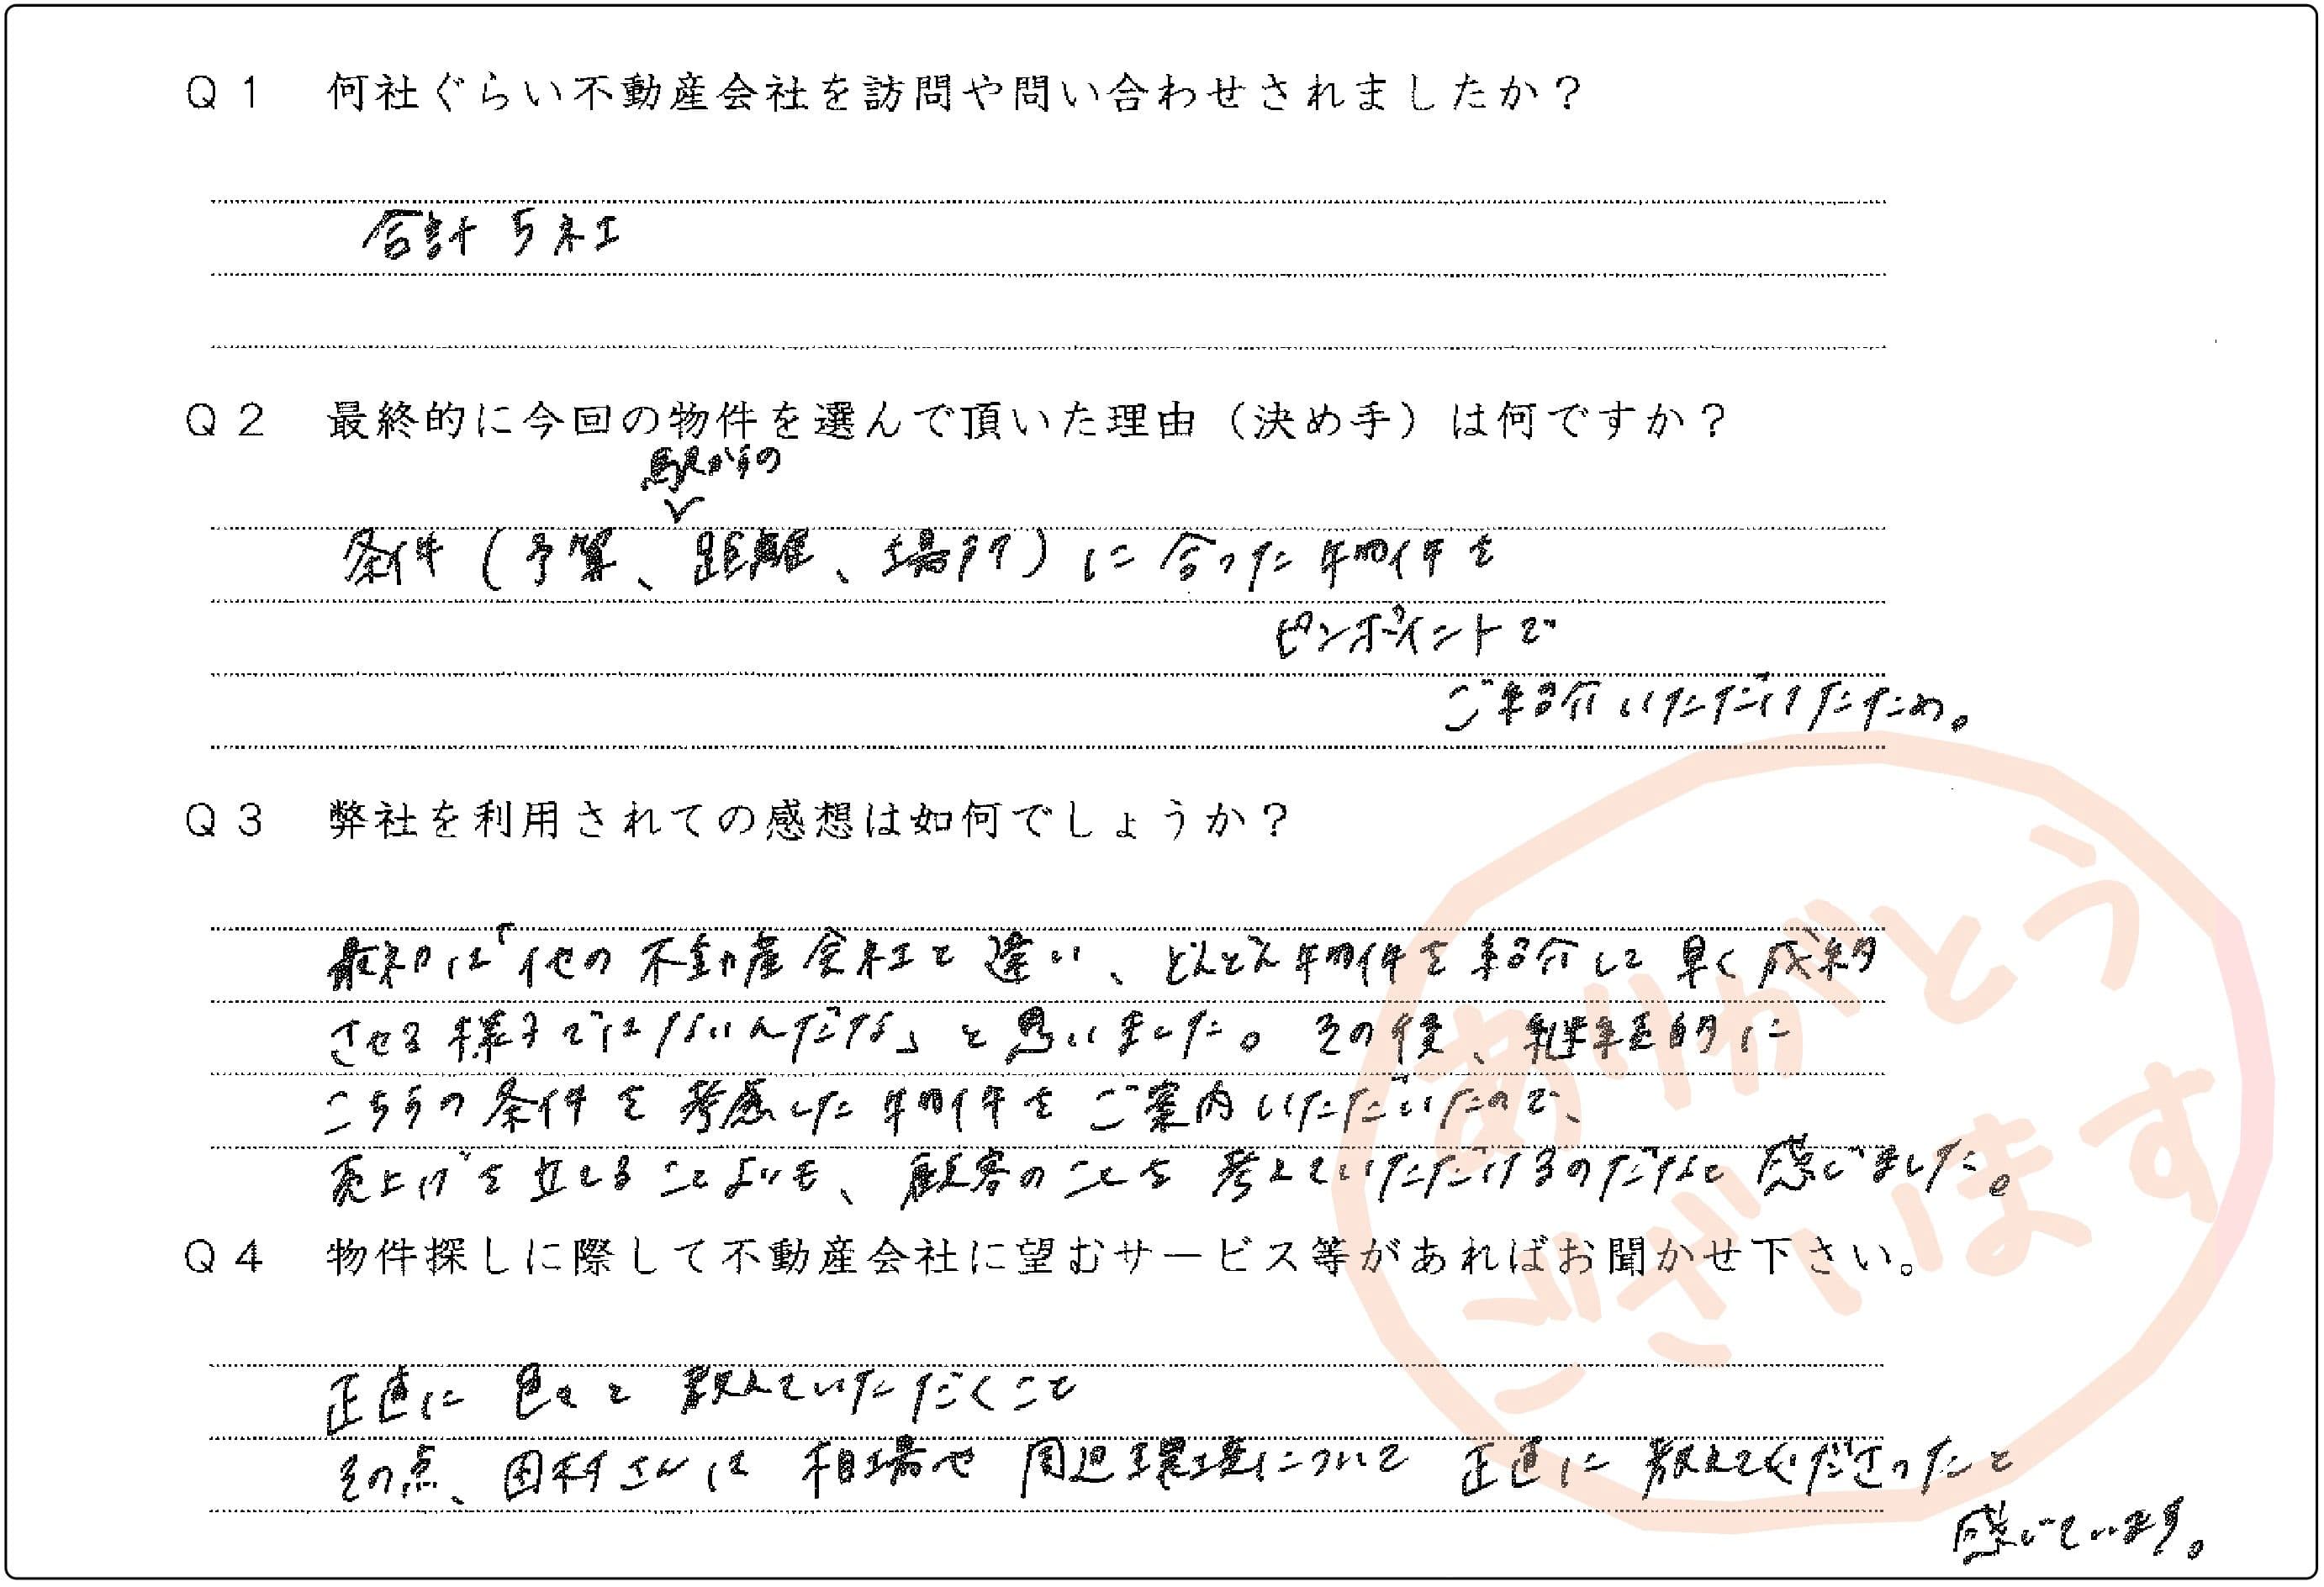 Q1 何社ぐらい不動産会社を訪問や問い合わせされましたか？
合計5社
Q2 最終的に今回の物件を選んで頂いた理由（決め手）は何ですか？
駅からの
条件（予算、距離、場所）に合った物件を
ピンポイントで
ご紹介いただけたため。
Q3 弊社を利用されての感想は如何でしょうか？
最初は「他の不動産会社と違い、どんどん物件を紹介して早く成約
させる様子ではないんだな」と思いました。その後、継続的に
こちらの条件を考慮した物件をご案内いただいたので、
売上げを立てることよりも、顧客のことを考えていただけるのだなと感じました。
Q4 物件探しに際して不動産会社に望むサービス等があればお聞かせ下さい。
正直に色々と教えていただくこと
その点、田村さんは相場や周辺環境について正直に教えてくださったと
感じています。
ありがとう
ございます